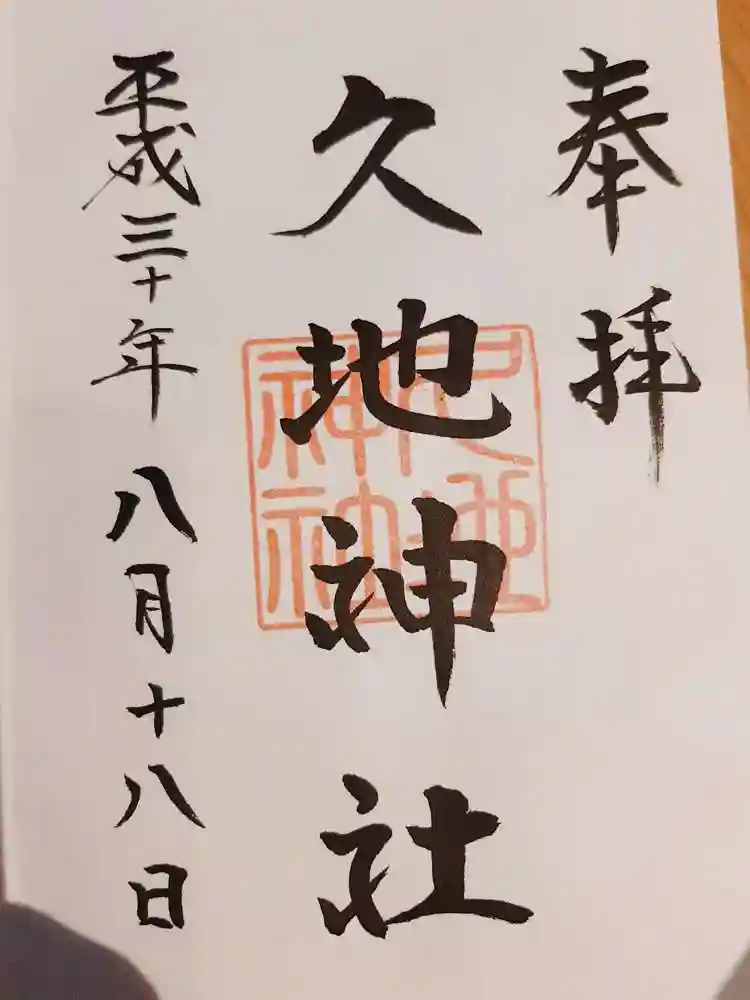 奉拝
久地神社
久地神社
平成三十年八月十八日